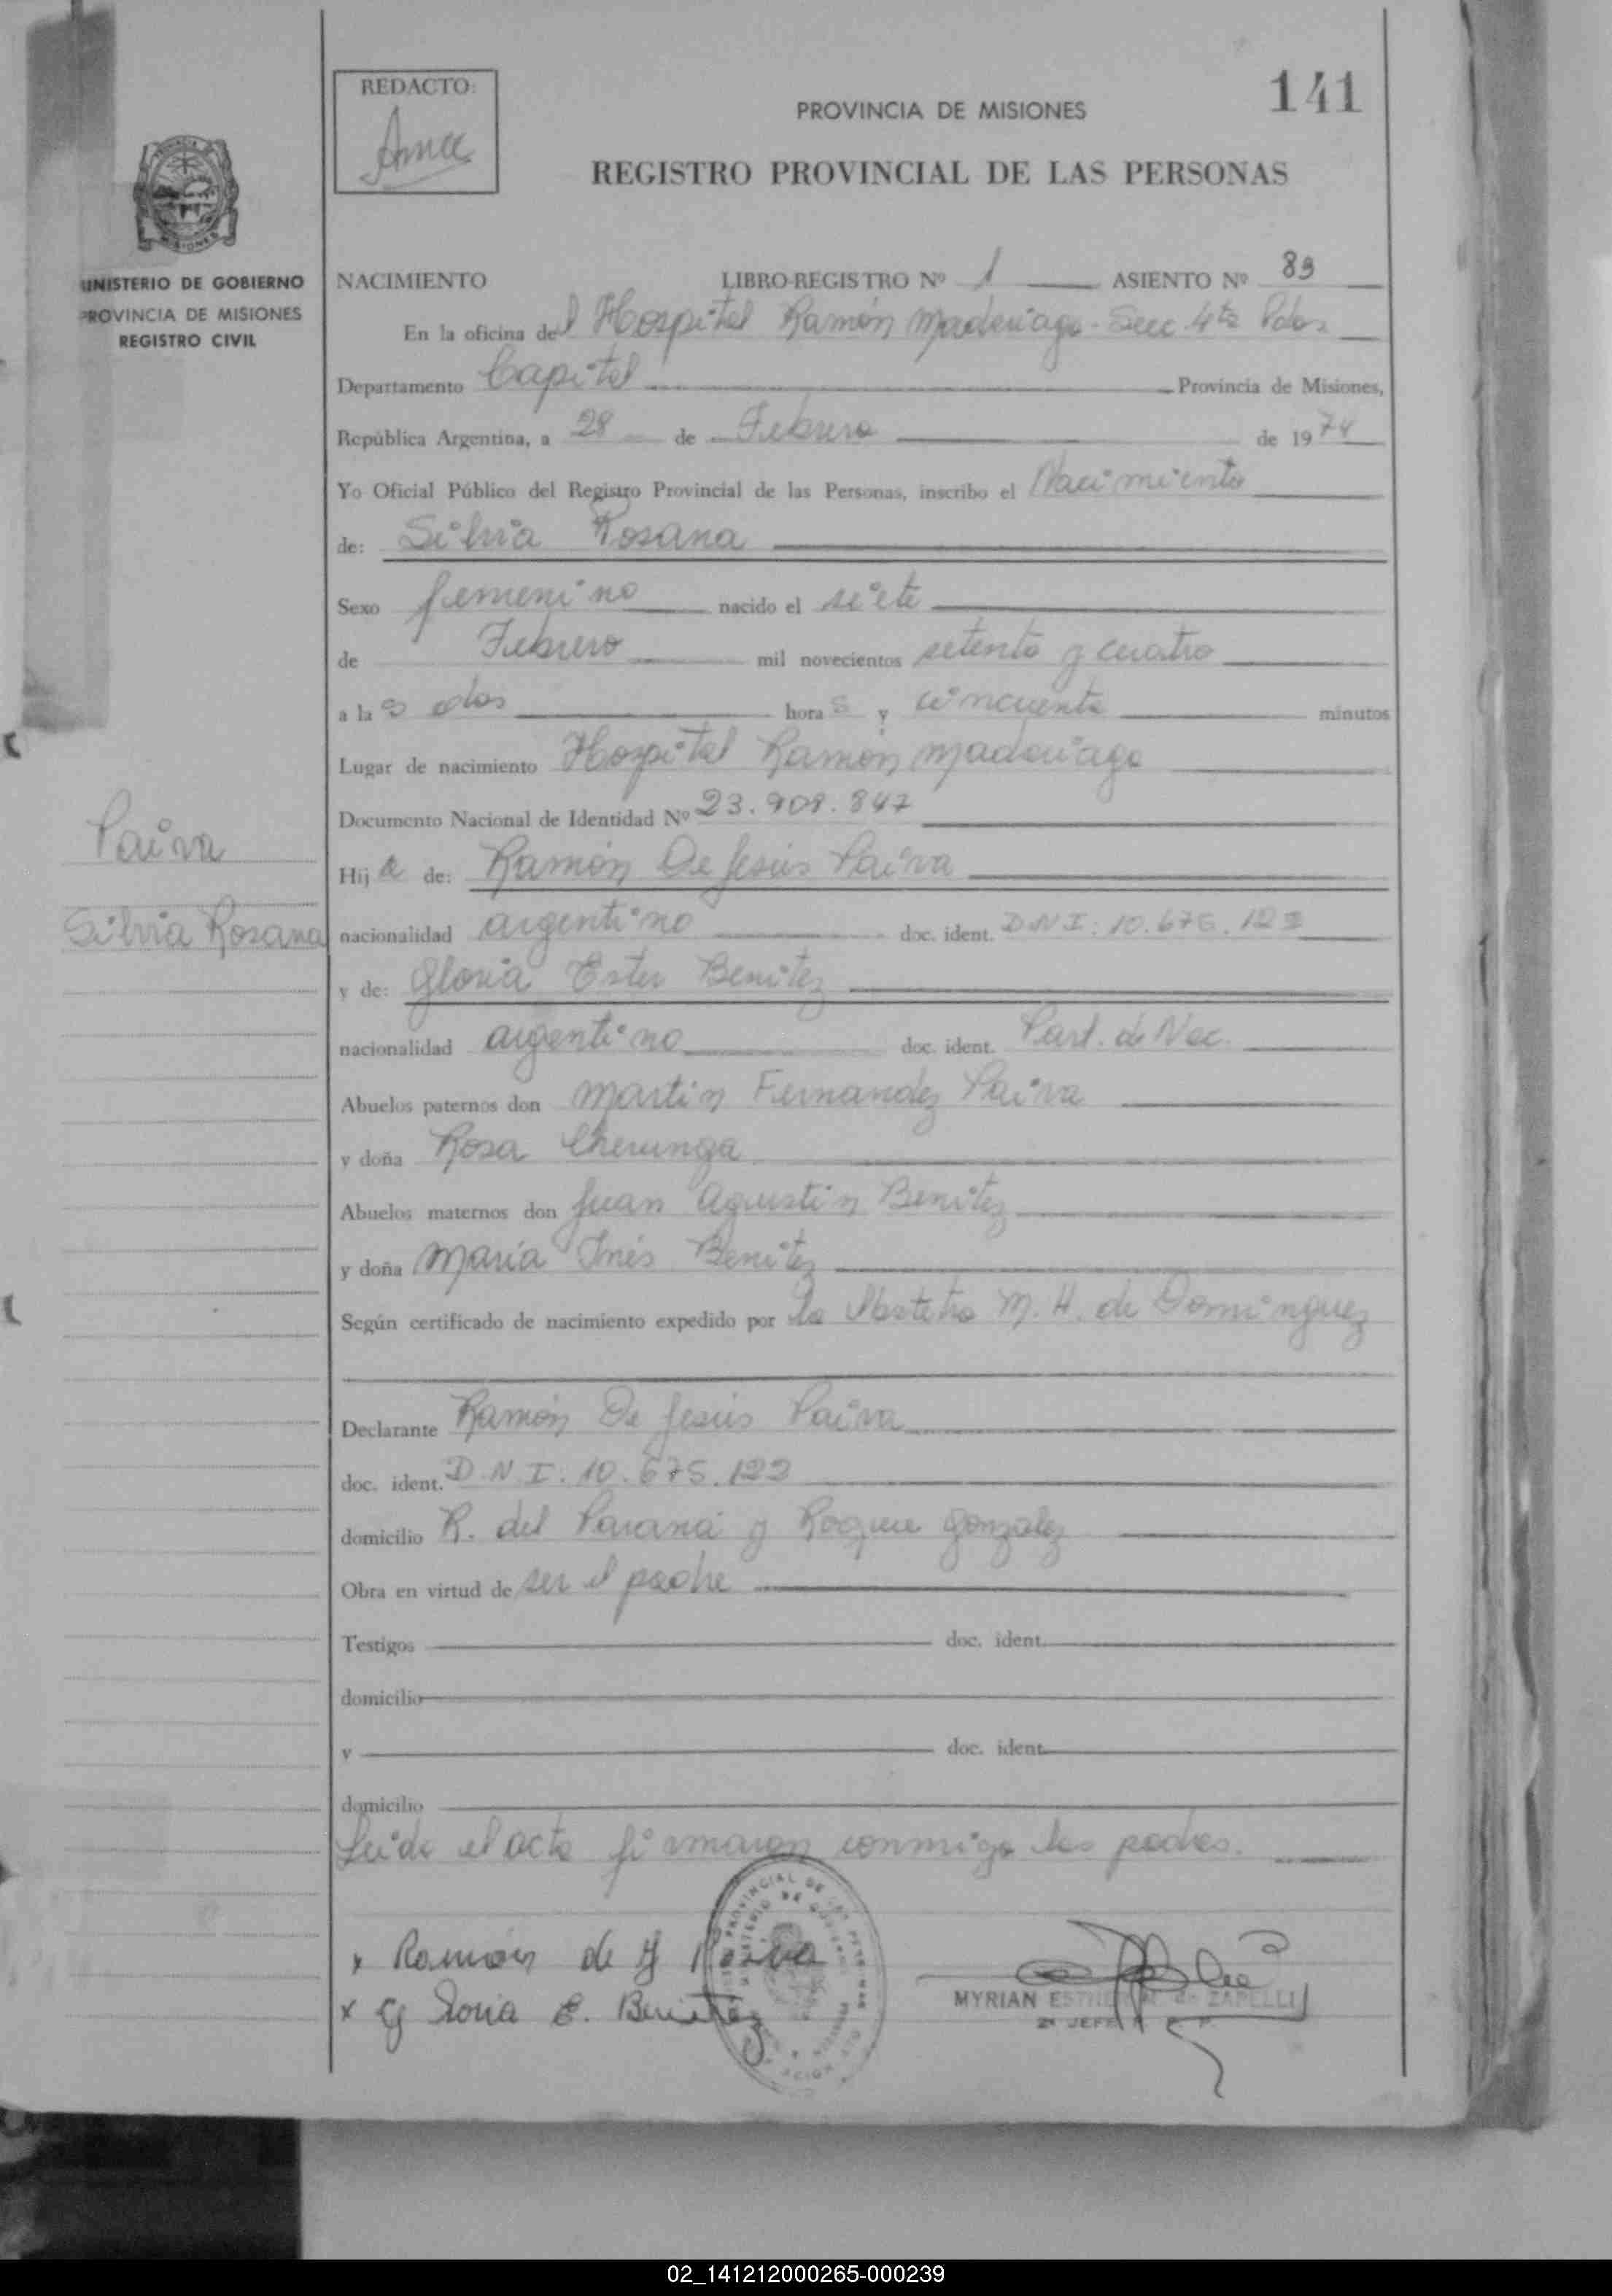 141
REDACTO:
PROVINCIA DE MISIONES
REGISTRO PROVINCIAL DE LAS PERSONAS
MINISTERIO DE GOBIERNO
PROVINCIA DE MISIONES
REGISTRO CIVIL
NACIMIENTO LIBRO-REGISTRO Nº 1 ASIENTO Nº 83
En la oficina del Hospital Ramón Madariaga - Secc. 4ta Pdas
Departamento Capital Provincia de Misiones,
República Argentina, a 28 de Febrero de 1974
Yo Oficial Público del Registro Provincial de las Personas, inscribo el Nacimiento
de: Silvia Rosana
Sexo femenino nacido el siete
de Febrero mil novecientos setenta y cuatro
a las dos horas y cincuenta minutos
Lugar de nacimiento Hospital Ramón Madariaga
Documento Nacional de Identidad Nº 23.908.847
Paiva
Hija de: Ramón De Jesús Paiva
Silvia Rosana
nacionalidad argentino doc. ident. D.N.I: 10.675.123
y de: Gloria Ester Benitez
nacionalidad argentino doc. ident. Part. de Nac.
Abuelos paternos don Martin Fernandez Paiva
y doña Rosa
Abuelos maternos don Juan Agustin Benitez
y doña María Inés Benitez
Según certificado de nacimiento expedido por la M. H. de Dominguez
Declarante Ramón De Jesús Paiva
doc. ident. D.N.I: 10.675.123
domicilio R. del Paraná y Roque González
Obra en virtud de ser el padre
Testigos doc. ident.
domicilio
y doc. ident.
domicilio
Leida el acta firmaron conmigo los padres.
x Ramón de J Paiva
x Gloria E. Benitez
MYRIAN ESTHER M. de ZAPELLI
2ª JEFE R. P. P.
02_141212000265-000239